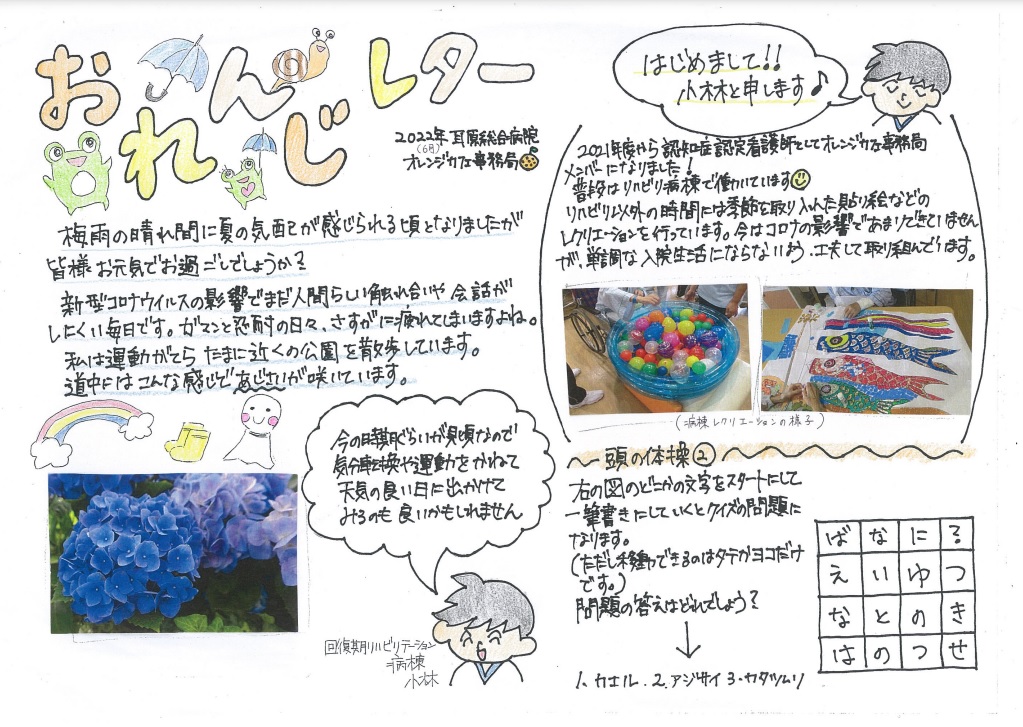 おれんじ レター
2022年 耳原総合病院
(6月)
オレンジカフェ事務局
梅雨の晴れ間に夏の気配が感じられる頃となりましたが
皆様お元気でお過ごしでしょうか?
新型コロナウイルスの影響でまだ人間らしい触れ合いや会話が
しにくい毎日です。ガマンと忍耐の日々、さすがに疲れてしまいますよね。
私は運動がてら たまに近くの公園を散歩しています。
道中にはこんな感じであじさいが咲いています。
今の時期ぐらいが見頃なので
気分転換や運動をかねて
天気の良い日に出かけて
みるのも良いかもしれません
回復期リハビリテーション
病棟
小林
はじめまして!!
小林と申します♪
2021年度から認知症認定看護師としてオレンジカフェ事務局
メンバーになりました!
普段はリハビリ病棟で働いています
リハビリ以外の時間には季節を取り入れた貼り絵などの
レクリエーションを行っています。今はコロナの影響であまりできていません
が、単調な入院生活にならないよう、工夫して取り組んでいます。
(病棟レクリエーションの様子)
頭の体操②
右の図のどこかの文字をスタートにして
一筆書きにしていくとクイズの問題に
なります。
(ただし移動できるのはタテかヨコだけ
です。)
問題の答えはどれでしょう?
↓
1.カエル.2.アジサイ 3.カタツムリ
ば な に る
え い ゆ つ
な と の き
は の つ せ